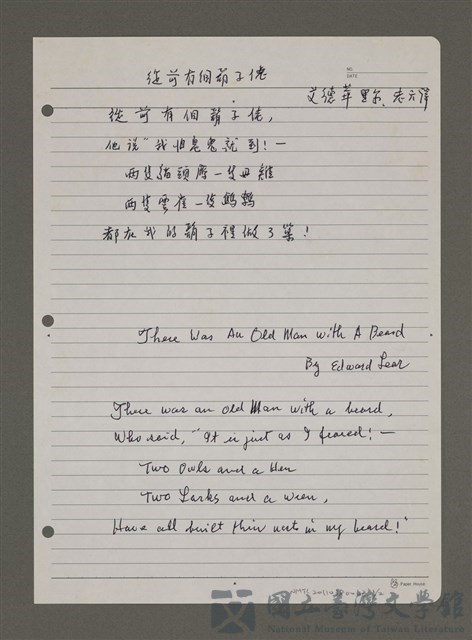 從前有個鬍子佬
NO.
DATE
艾德華里尔、老六譯
從前有個鬍子佬，
他說“我怕鬼鬼就到！—
兩隻貓頭鷹一隻母雞
兩隻雲雀一隻鷦鷯
都在我的鬍子裡做了巢！
There Was An Old Man with A Beard
By Edward Lear
There was an old Man with a beard,
Who said, "It is just as I feared! —
Two Owls and a Hen
Two Larks and a wren,
Have all built their nests in my beard!"
Paper House
國立臺灣文學館
National Museum of Taiwan Literature